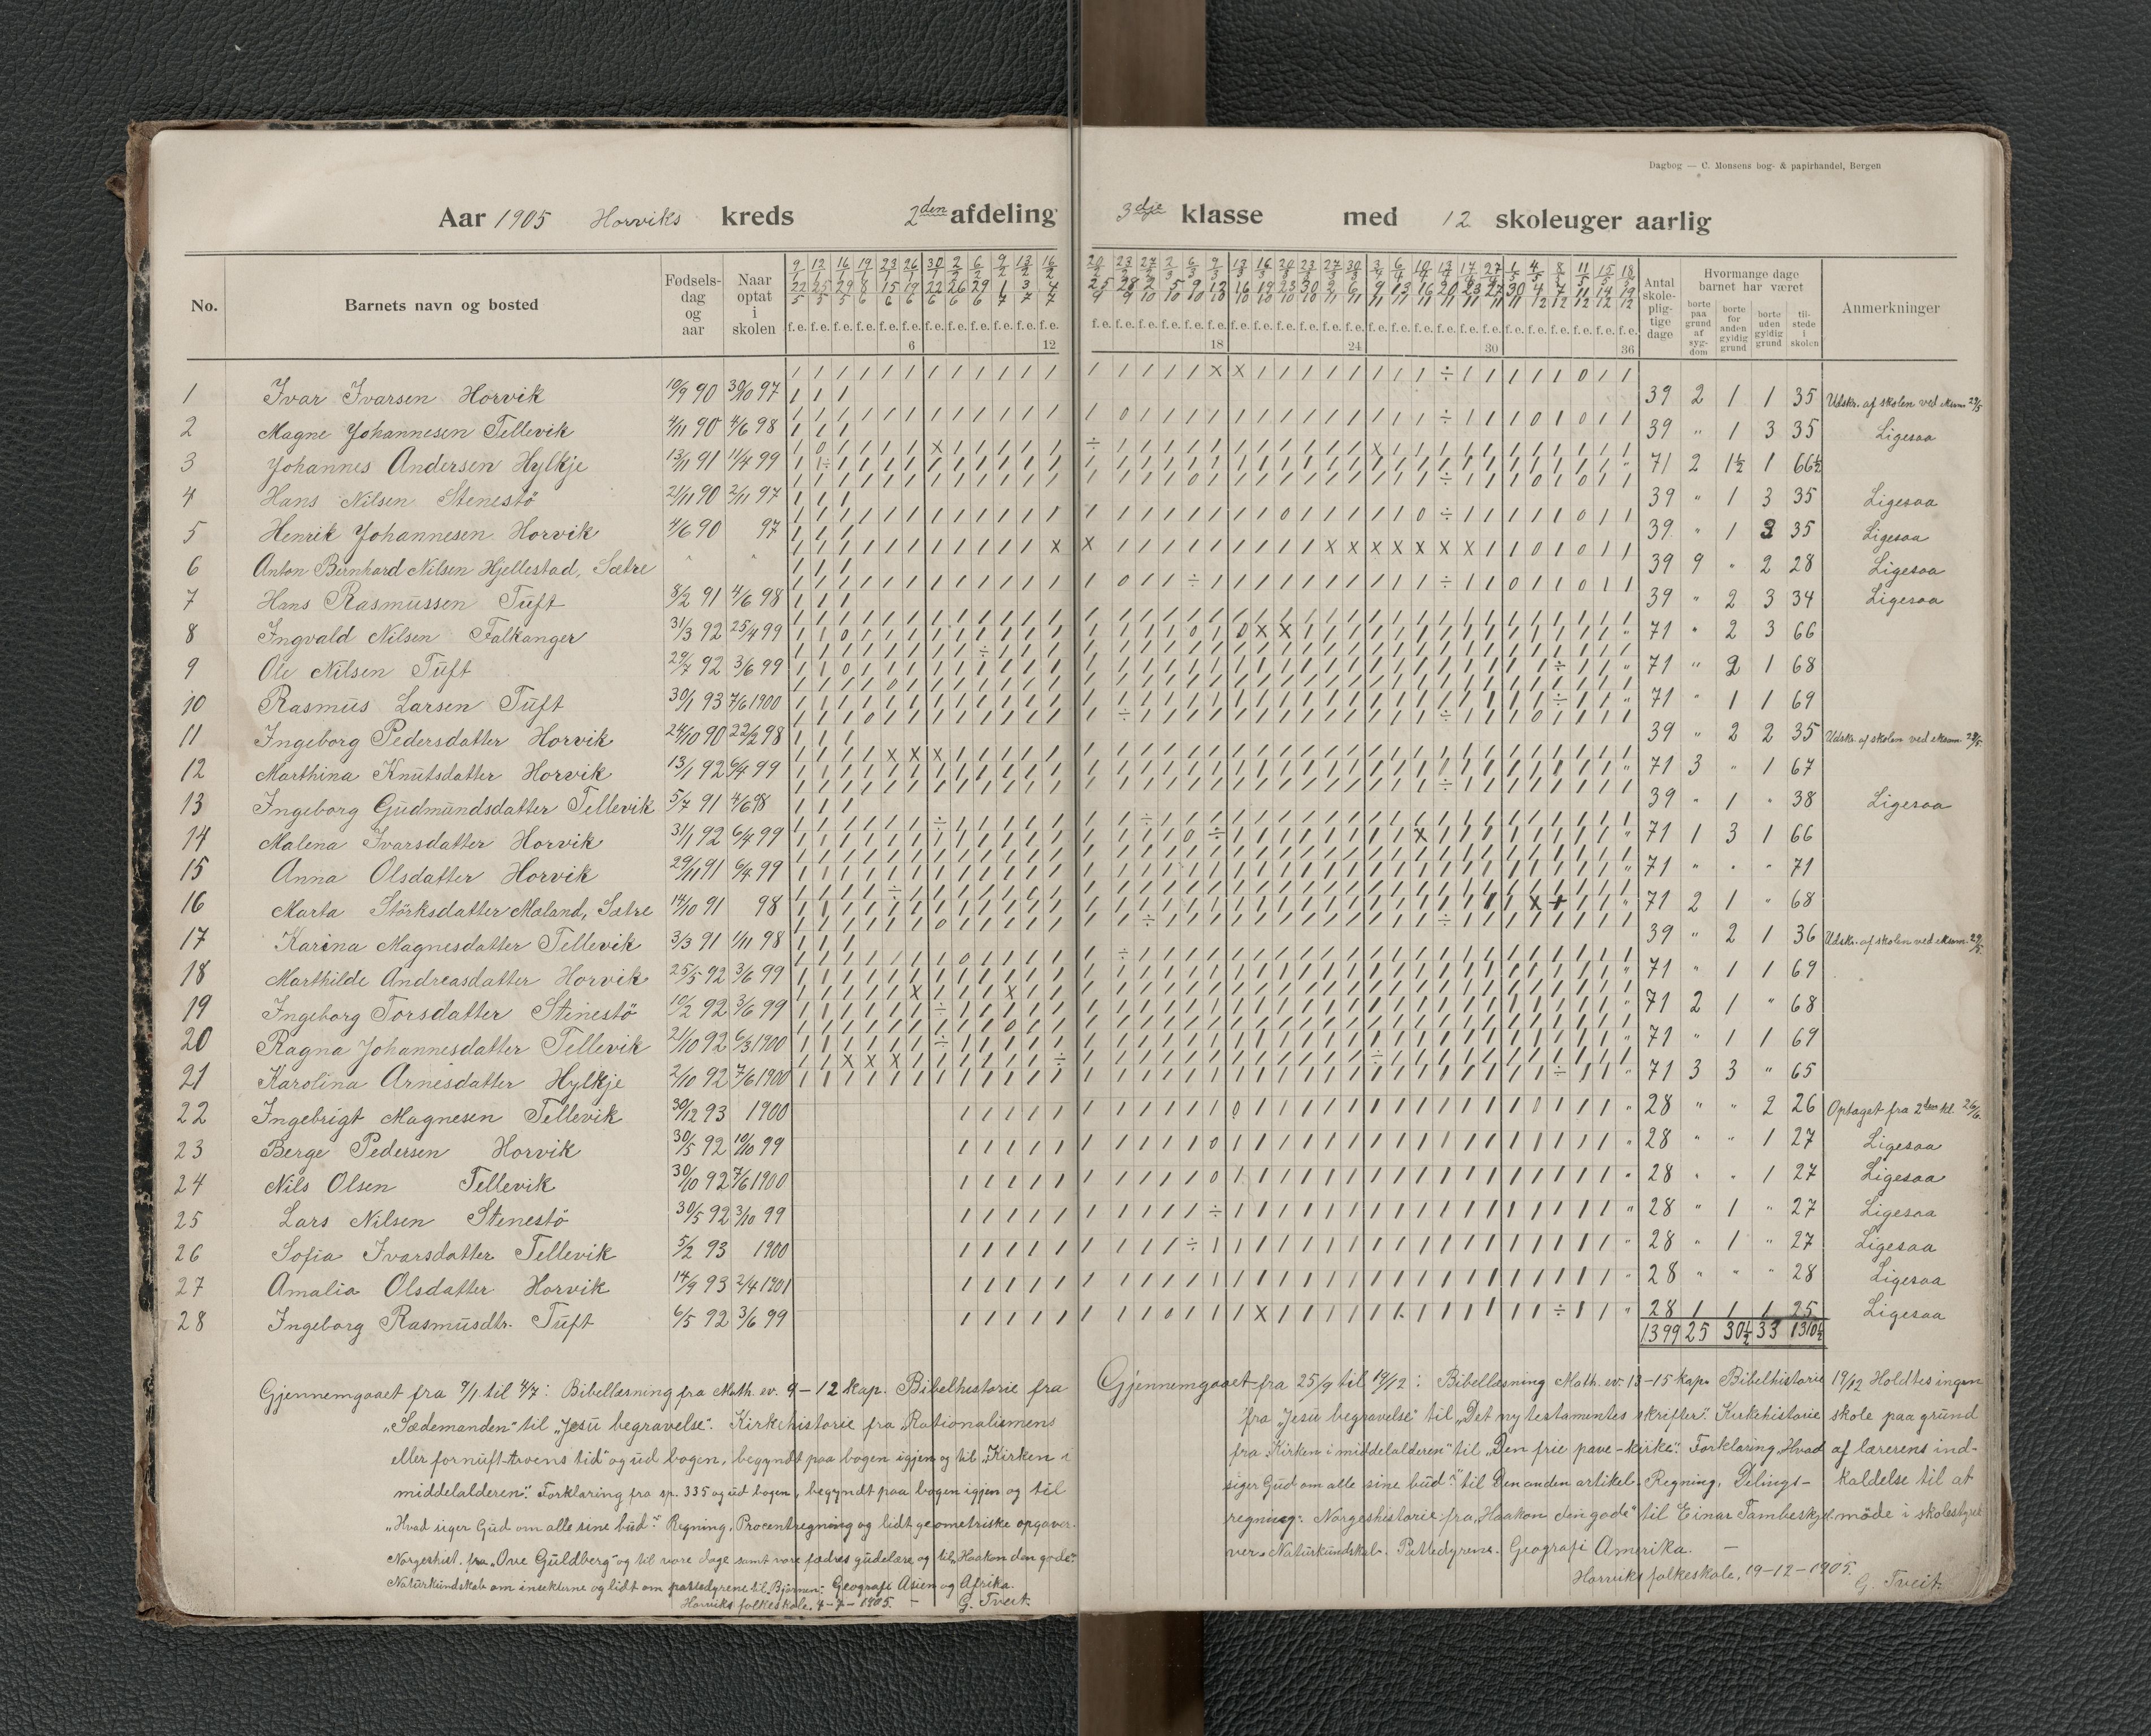 Dagbog — C. Monsens bog- & papirhandel, Bergen
Aar 1905 Horviks kreds 2den afdeling 3dje klasse med 12 skoleuger aarlig
No. Barnets navn og bosted Fødselsdag og aar Naar optat i skolen Antal skolepligtige dage Hvormange dage barnet har været Anmerkninger
borte paa grund af sygdom borte for anden gyldig grund borte uden gyldig grund tilstede i skolen
f. e. f. e. f. e. f. e. f. e. f. e. f. e. f. e. f. e. f. e. f. e. f. e.
6 12 18 24 30 36
1 Ivar Ivarsen Horvik 10/9 90 30/10 97 39 2 1 1 35 Udskr. af skolen ved eksam 29/5
2 Magne Johannesen Tellevik 4/11 90 4/6 98 39 " 1 3 35 Ligesaa
3 Johannes Andersen Hylkje 13/1 91 11/4 99 71 2 1½ 1 66½
4 Hans Nilsen Stenestö 21/11 90 2/11 97 39 " 1 3 35 Ligesaa
5 Henrik Johannesen Horvik 4/6 90 97 39 " 1 3 35 Ligesaa
6 Anton Bernhard Nilsen Hjellestad, Sætre 39 9 " 2 28 Ligesaa
7 Hans Rasmussen Tuft 8/2 91 4/6 98 39 " 2 3 34 Ligesaa
8 Ingvald Nilsen Falkanger 31/3 92 25/4 99 71 " 2 3 66
9 Ole Nilsen Tuft 29/7 92 3/6 99 71 " 2 1 68
10 Rasmus Larsen Tuft 30/1 93 7/6 1900 71 " 1 1 69
11 Ingeborg Pedersdatter Horvik 24/10 90 22/2 98 39 " 2 2 35 Udskr. af skolen ved eksam 29/5
12 Marthina Knutsdatter Horvik 13/1 92 6/4 99 71 3 " 1 67
13 Ingeborg Gudmundsdatter Tellevik 5/7 91 4/6 98 39 " 1 " 38 Ligesaa
14 Malena Ivarsdatter Horvik 31/1 92 6/4 99 71 1 3 1 66
15 Anna Olsdatter Horvik 29/11 91 6/4 99 71 " " " 71
16 Marta Störksdatter Mæland, Sætre 14/10 91 98 71 2 1 " 68
17 Karina Magnesdatter Tellevik 3/3 91 1/11 98 39 " 2 1 36 Udskr. af skolen ved eksam. 29/5
18 Marthilde Andreasdatter Horvik 25/5 92 3/6 99 71 " 1 1 69
19 Ingeborg Torsdatter Stenestö 10/2 92 3/6 99 71 2 1 " 68
20 Ragna Johannesdatter Tellevik 21/10 92 6/3 1900 71 " 1 1 69
21 Karolina Arnesdatter Hylkje 2/10 92 7/6 1900 71 3 3 " 65
22 Ingebrigt Magnesen Tellevik 30/12 93 1900 28 " " 2 26 Optaget fra 2den kl. 26/6
23 Berge Pedersen Horvik 30/5 92 10/10 99 28 " " 1 27 Ligesaa
24 Nils Olsen Tellevik 30/10 92 7/6 1900 28 " " 1 27 Ligesaa
25 Lars Nilsen Stenestö 30/5 92 3/10 99 28 " 1 " 27 Ligesaa
26 Sofia Ivarsdatter Tellevik 5/2 93 1900 28 " 1 " 27 Ligesaa
27 Amalia Olsdatter Horvik 14/9 93 2/4 1901 28 " " " 28 Ligesaa
28 Ingeborg Rasmusdtr. Tuft 6/5 92 3/6 99 28 1 1 1 25 Ligesaa
1399 25 30½ 33 1310½
Gjennemgaaet fra 9/1 til 4/7: Bibellæsning fra Math. ev. 9–12 kap. Bibelhistorie fra
„Sædemanden" til „Jesu begravelse". Kirkehistorie fra „Rationalismens
eller fornuft-troens tid" og ud bogen, begyndt paa bogen igjen og til „Kirken i
middelalderen". Forklaring fra sp. 335 og ud bogen, begyndt paa bogen igjen og til
„Hvad siger Gud om alle sine bud?" Regning, Procentregning og lidt geometriske opgaver.
Norgeshist. fra „Ove Guldberg" og til vore dage samt vore fædres gudelære og til „Haakon den gode".
Naturkundskab om insekterne og lidt om pattedyrene til „Bjørnen". Geografi Asien og Afrika.
Horviks folkeskole, 4–7–1905. – G. Tveit.
Gjennemgaaet fra 25/9 til 19/12: Bibellæsning Math. ev. 13–15 kap. Bibelhistorie
fra „Jesu begravelse" til „Det ny testamentes skrifter". Kirkehistorie
fra „Kirken i middelalderen" til „Den frie pave-kirke". Forklaring „Hvad
siger Gud om alle sine bud?" til Den anden artikel. Regning, Delings-
regning. Norgeshistorie fra „Haakon den gode" til Einar Tambeskjel-
ver. Naturkundskab. Pattedyrene. Geografi Amerika. –
19/12 Holdtes ingen
skole paa grund
af lærerens ind-
kaldelse til at
møde i skolestyret
Horviks folkeskole, 19–12–1905.
G. Tveit.